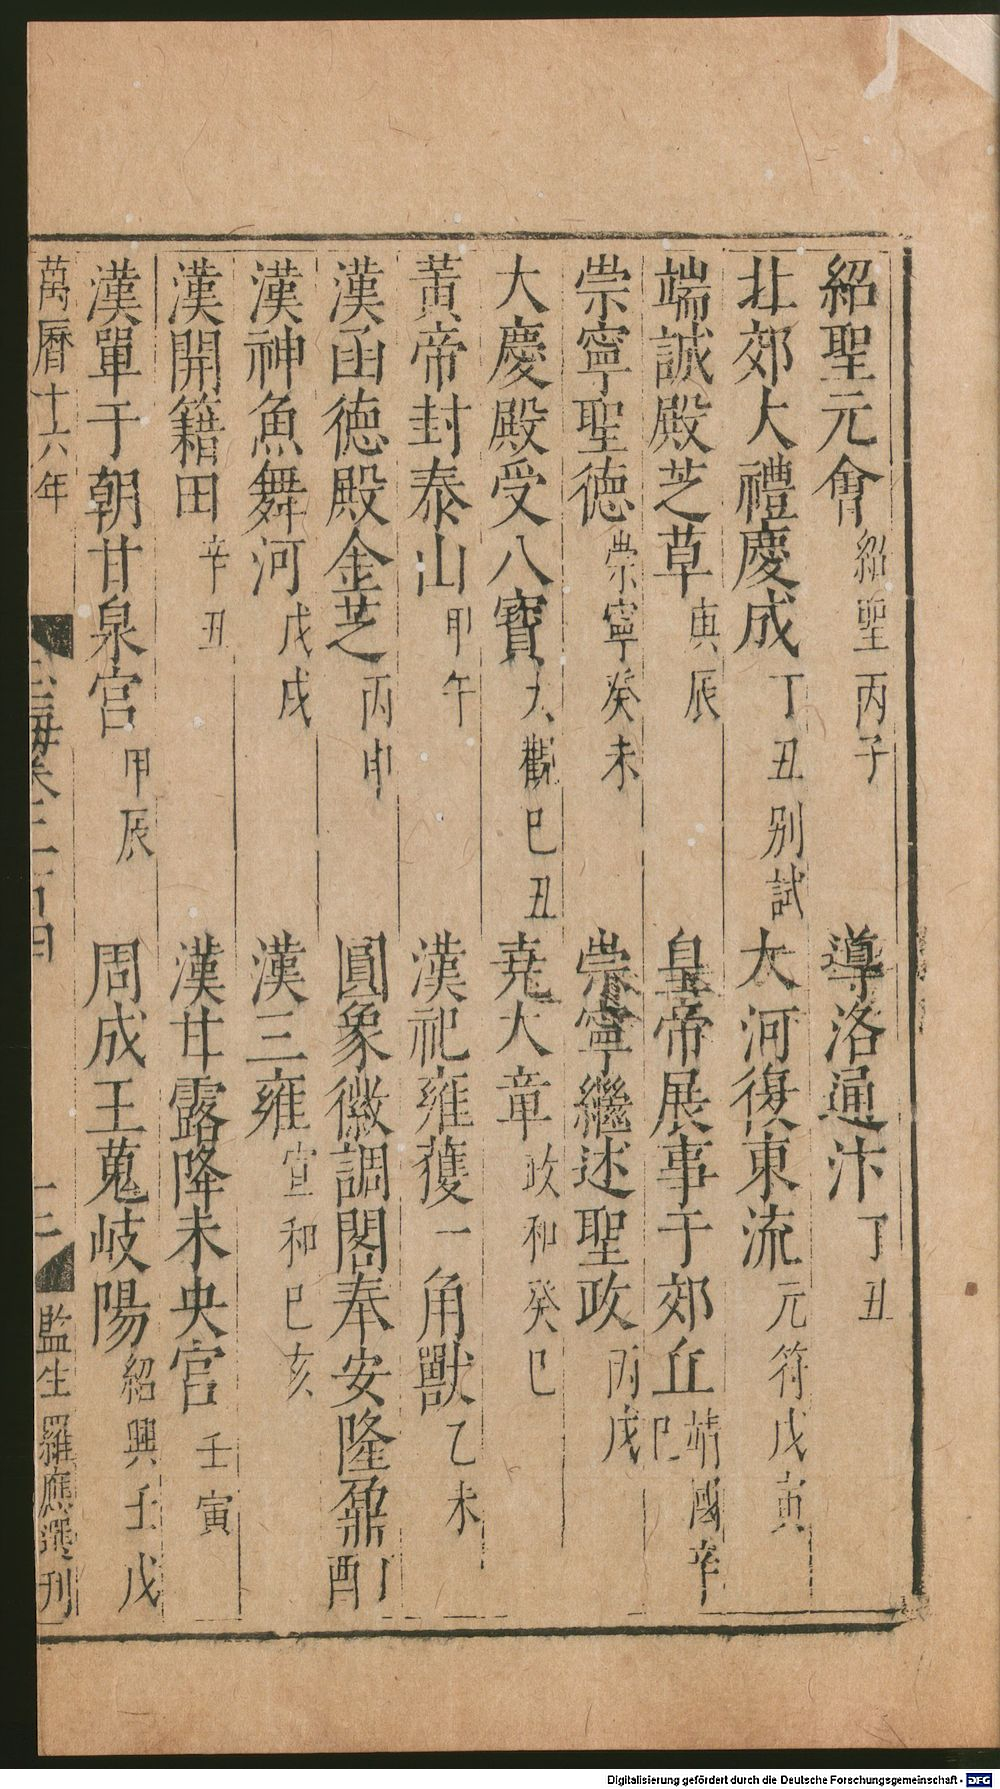 紹聖元會紹聖丙子　導洛通汴丁丑
北郊大禮慶成丁丑別試　大河復東流元符戊寅
端誠殿芝草庚辰　皇帝展事于郊丘靖國辛巳
崇寧聖德崇寧癸未　崇寧繼述聖政丙戌
大慶殿受八寶大觀己丑　堯大章政和癸巳
黃帝封泰山甲午　漢祀雍獲一角獸乙未
漢函德殿金芝丙申　圓象徽調閣奉安隆鼐酎
漢神魚舞河戊戌　漢三雍宣和己亥
漢開籍田辛丑　漢甘露降未央宮壬寅
漢單于朝甘泉宮甲辰　周成王蒐岐陽紹興壬戌
萬曆十六年　玉海卷二百四　監生羅應選刊
Digitalisierung gefördert durch die Deutsche Forschungsgemeinschaft - DFG